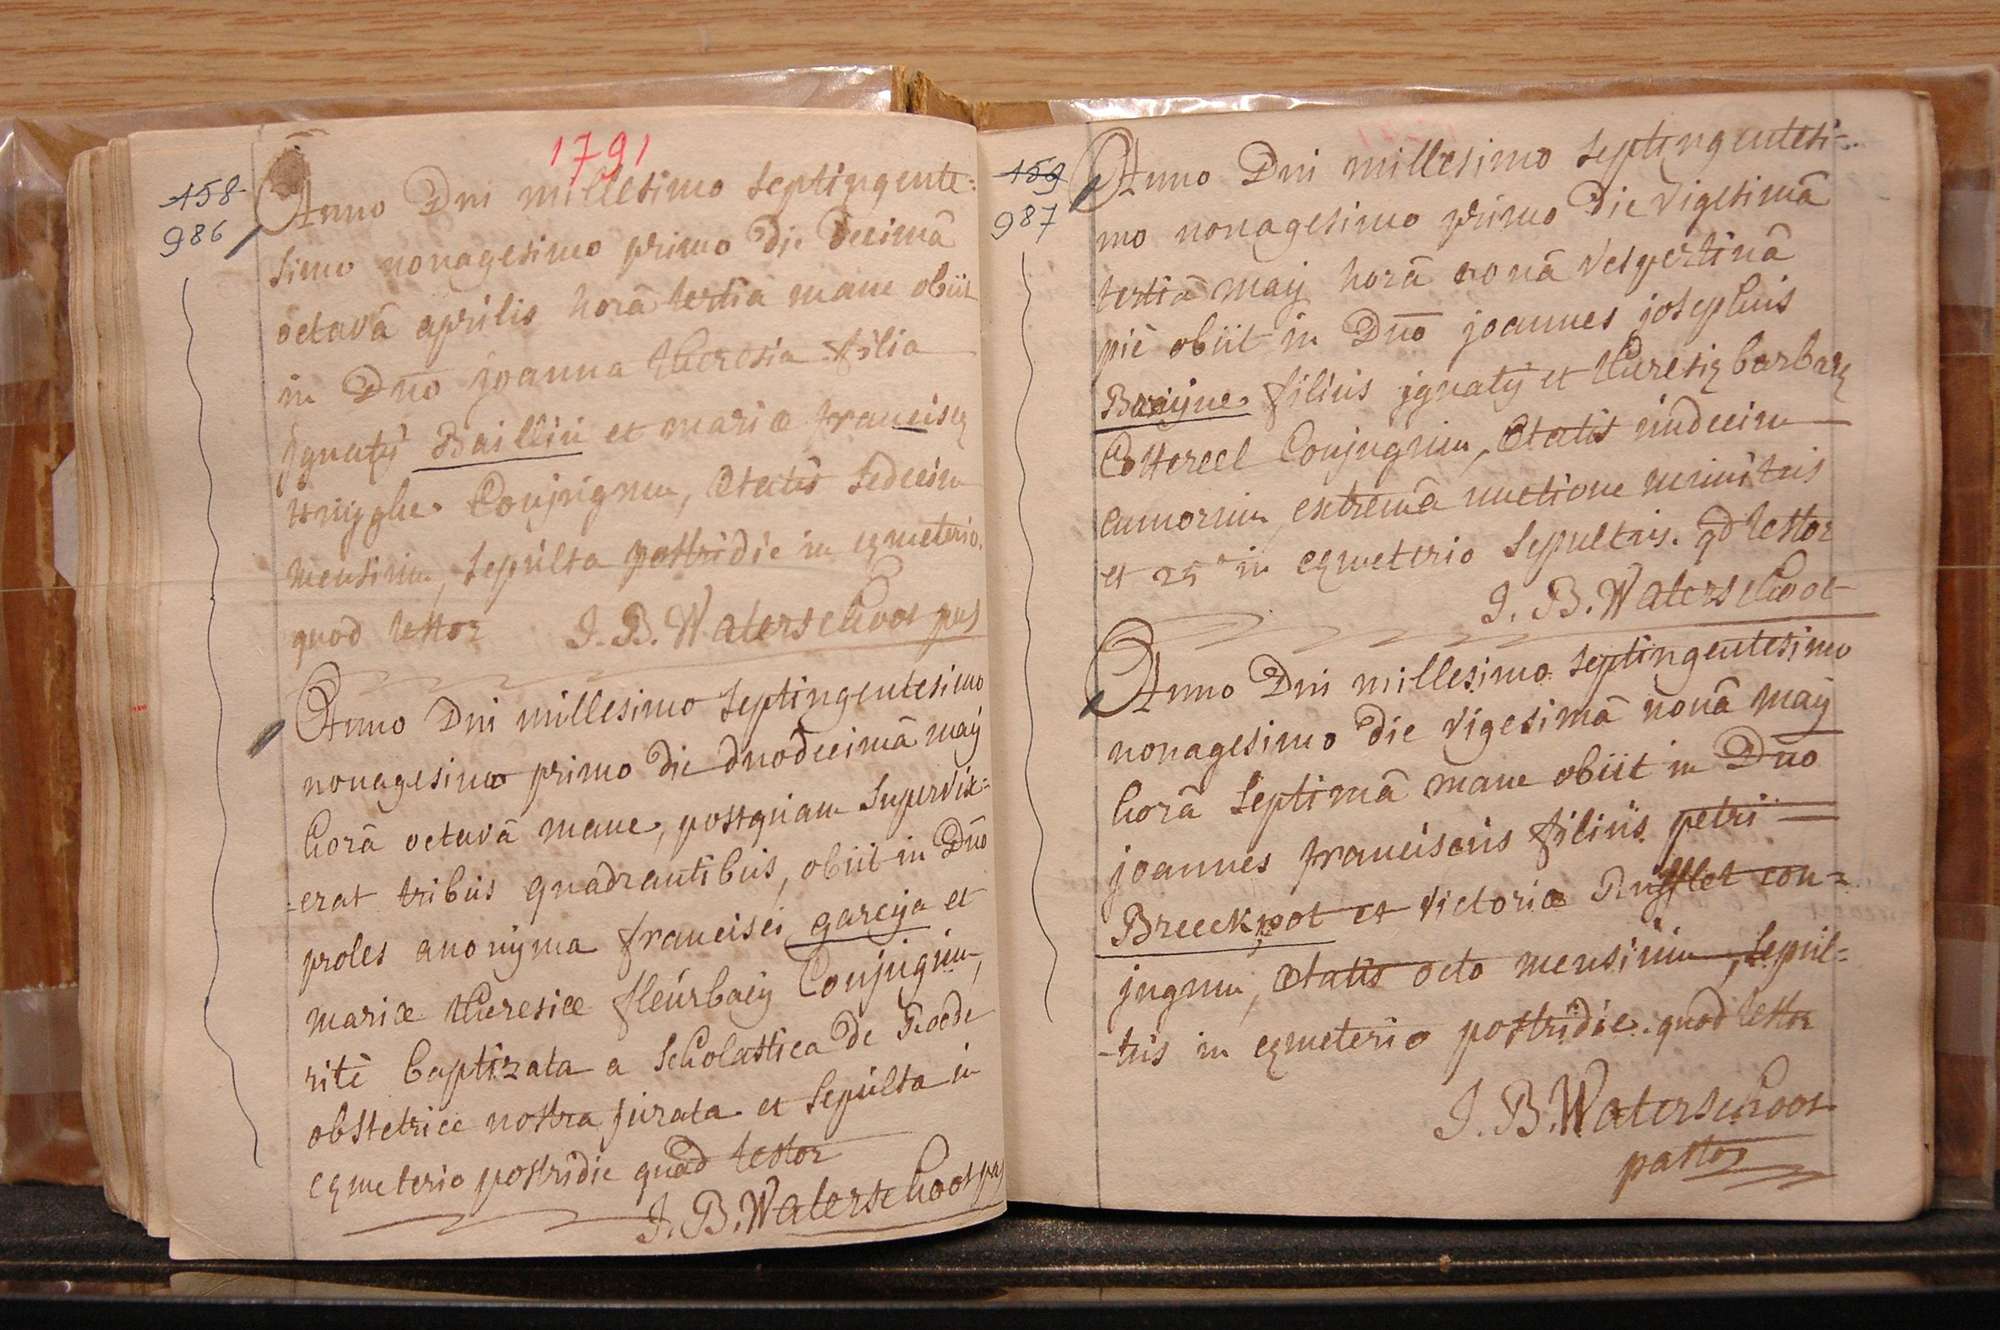 1791
158
986
Anno Dni millesimo Septingente=
simo nonagesimo primo die decimâ
octavâ aprilis horâ tertiâ mane obiit
in Dno joanna theresia filia
jgnatij Bailliu et mariæ francisçę
Conjugum, ætatis sedecim
mensium, sepulta postridie in cęmeterio.
quod testor J. B. Waterschoot pas
Anno Dni millesimo septingentesimo
nonagesimo primo die duodecimâ maij
horâ octavâ mane, postquam supervix=
-erat tribus quadrantibus, obiit in Dno
proles anonijma francisci garcija et
mariæ theresiæ fleurbaeij Conjugum,
ritè baptizata a scholastica de Roode
obstetrice nostra jurata. et sepulta in
cęmeterio postridie quod testor
J. B. Waterschoot pas
159
987
Anno Dni millesimo septingentesi-
mo nonagesimo primo die vigesimâ
tertiâ maij horâ nonâ vespertinâ
piè obiit in Dno joannes josephus
filius jgnatij et theresię barbarę
Cottereel Conjugum, ætatis undecim
annorum, extremâ unctione munitus
et 25a in cęmeterio sepultus. qd testor
J. B. Waterschoot
Anno Dni millesimo septingentesimo
nonagesimo die vigesimâ nonâ maij
horâ septimâ mane obiit in Dno
joannes franciscus filius petri
Breeckpot et victoriæ Rufflet con=
jugum, ætatis octo mensium, sepul=
-tus in cęmeterio postridie. quod testor
J. B. Waterschoot
pastor